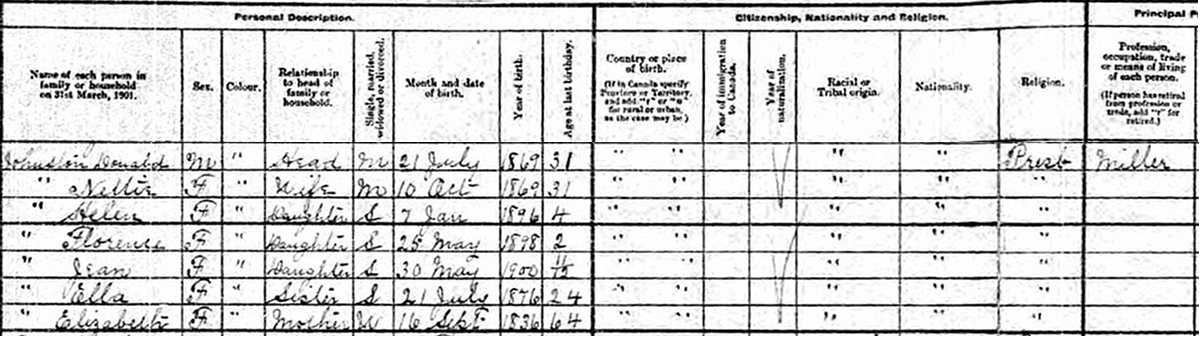 Personal Description. Citizenship, Nationality and Religion. Principal P
Name of each person in family or household on 31st March, 1901. Sex. Colour. Relationship to head of family or household. Single, married, widowed or divorced. Month and date of birth. Year of birth. Age at last birthday. Country or place of birth. (If in Canada specify Province or Territory, and add "r" or "u" for rural or urban, as the case may be.) Year of immigration to Canada. Year of naturalization. Racial or Tribal origin. Nationality. Religion. Profession, occupation, trade or means of living of each person. (If person has retired from profession or trade, add "r" for retired.)
Johnston Donald M " Head M 21 July 1869 31 " " " " Presb Miller
" Nettie F " Wife M 10 Oct 1869 31 " " " " "
" Helen F " Daughter S 7 Jan 1896 4 " " " " "
" Florence F " Daughter S 25 May 1898 2 " " " " "
" Jean F " Daughter S 30 May 1900 " " " " "
" Ella F " Sister S 21 July 1876 24 " " " " "
" Elizabeth F " Mother W 16 Sept 1836 64 " " " " "